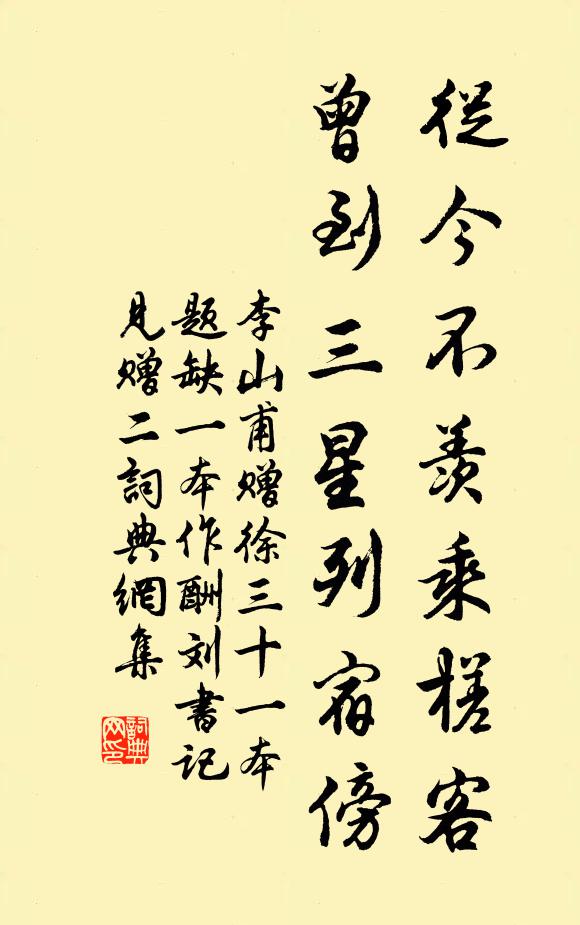 從今不羨乘槎客
曾到三星列宿傍
李山甫贈徐三十一本
題缺一本作酬刘書記
見贈二詞典網集
詞典網印